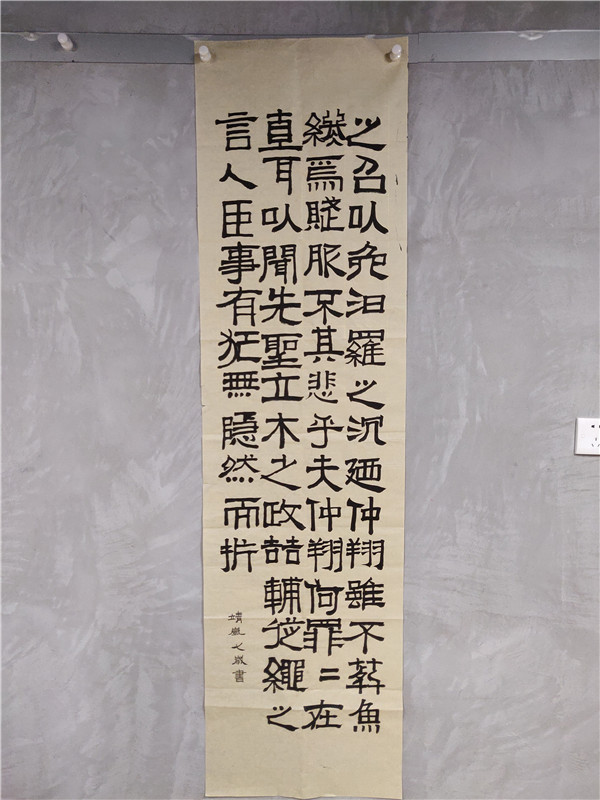 之召以免汨羅之沉廼仲翔雖不葬魚
爲賤服不其悲乎夫仲翔何罪二在
直耳以聞先聖立木之政喆輔從繩之
言人臣事有犯無隱然而折
靖之書